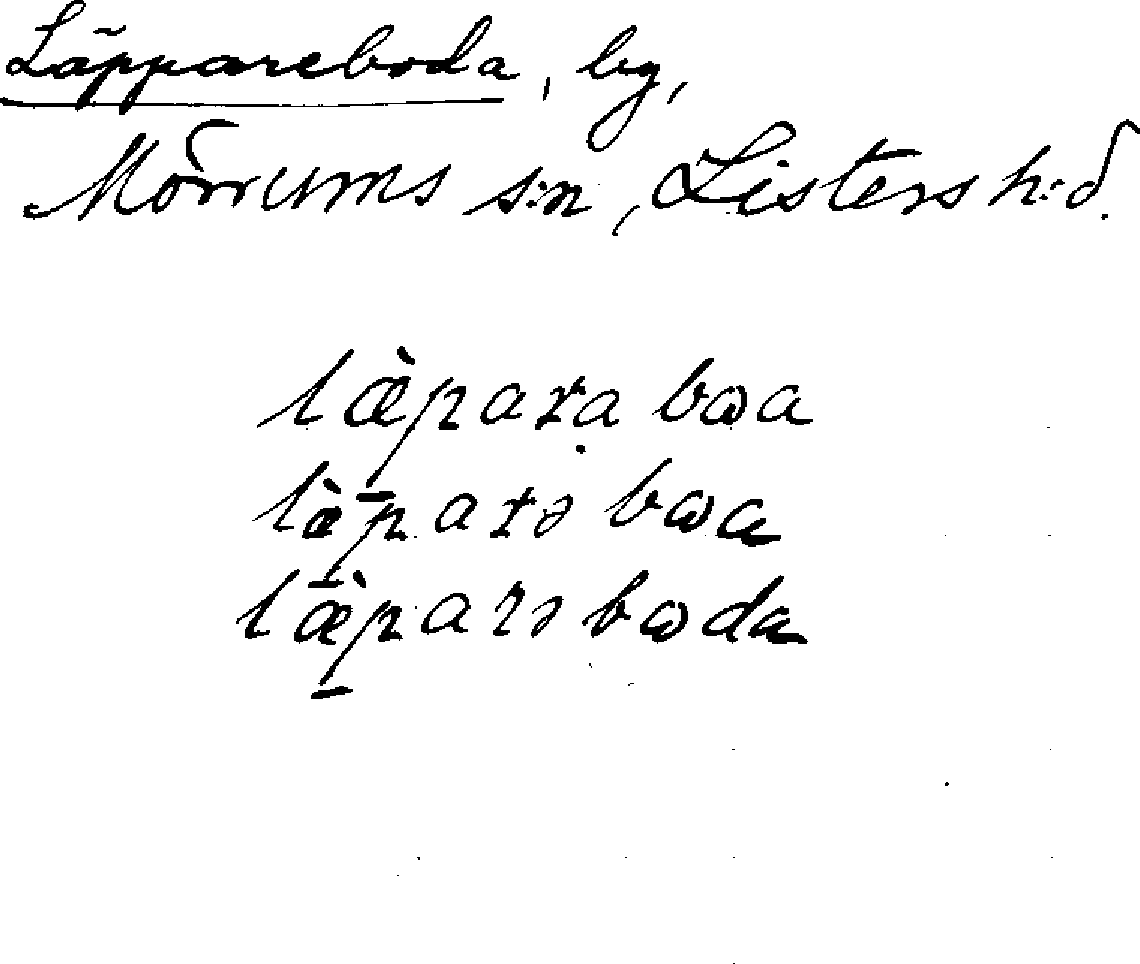 Läppareboda, by,
Mörrums s:n, Listers h:d.
læ̀paɽa bωa
læ̀parə bωa
læ̀parə bωda